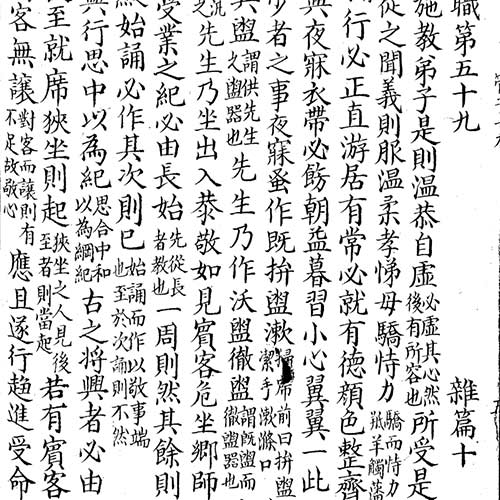 職第五十九 雜篇十
施教弟子是則溫恭自虛必虛其心然後有所容也所受是
從之聞義則服溫柔孝悌毋驕恃力驕而恃力羝羊觸藩
行必正直游居有常必就有德顏色整齊
興夜寐衣帶必飭朝益暮習小心翼翼一此
少者之事夜寐蚤作既拚盥漱掃席前曰拚盥潔手漱滌口
具盥謂供先生之盥器也先生乃作沃盥徹盥謂既盥而徹盥器也
先生乃坐出入恭敬如見賓客危坐鄉師
受業之紀必由長始先從長者教也一周則然其餘則
始誦必作其次則已始誦而作以敬事端也至於次誦則不然
行思中以為紀思合中和以為綱紀古之將興者必由
至就席狹坐則起狹坐之人見後至者則當起若有賓客
客無讓對客而讓則有不足故敬心應且遂行趨進受命